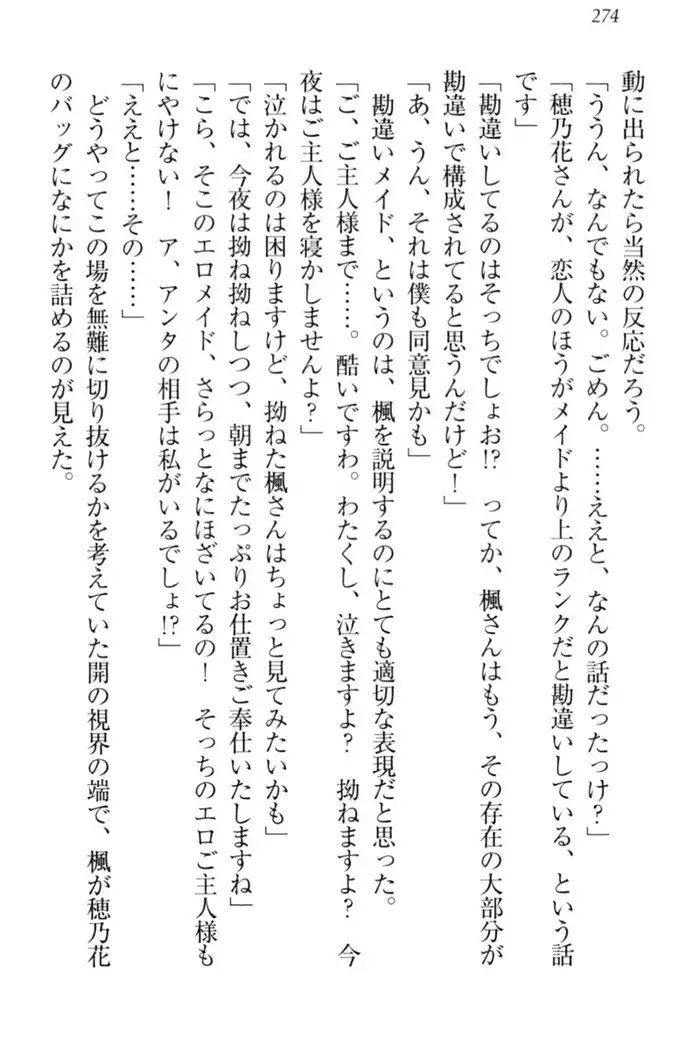 274
動に出られたら当然の反応だろう。
「ううん、なんでもない。ごめん。……ええと、なんの話だったっけ?」
「穂乃花さんが、恋人のほうがメイドより上のランクだと勘違いしている、という話
です」
「勘違いしてるのはそっちでしょお!? ってか、楓さんはもう、その存在の大部分が
勘違いで構成されてると思うんだけど!」
「あ、うん、それは僕も同意見かも」
勘違いメイド、というのは、楓を説明するのにとても適切な表現だと思った。
「ご、ご主人様まで……。酷いですわ。わたくし、泣きますよ? 拗ねますよ? 今
夜はご主人様を寝かしませんよ?」
「泣かれるのは困りますけど、拗ねた楓さんはちょっと見てみたいかも」
「では、今夜は拗ね拗ねしつつ、朝までたっぷりお仕置きご奉仕いたしますね」
「こら、そこのエロメイド、さらっとなにほざいてるの! そっちのエロご主人様も
にやけない! ア、アンタの相手は私がいるでしょ!?」
「ええと……その……」
どうやってこの場を無難に切り抜けるかを考えていた開の視界の端で、楓が穂乃花
のバッグになにかを詰めるのが見えた。